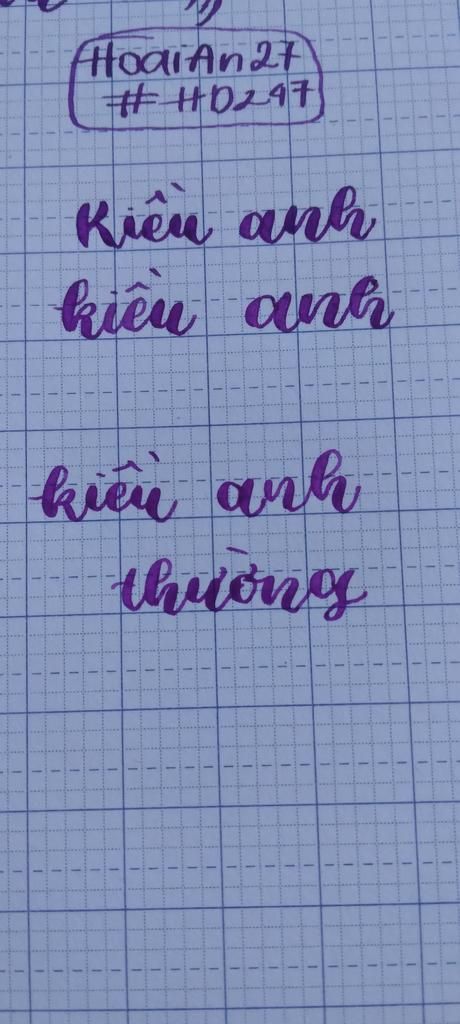 HoaiAn27
# HD247
Kiều anh
kiều anh
kiều anh
thường